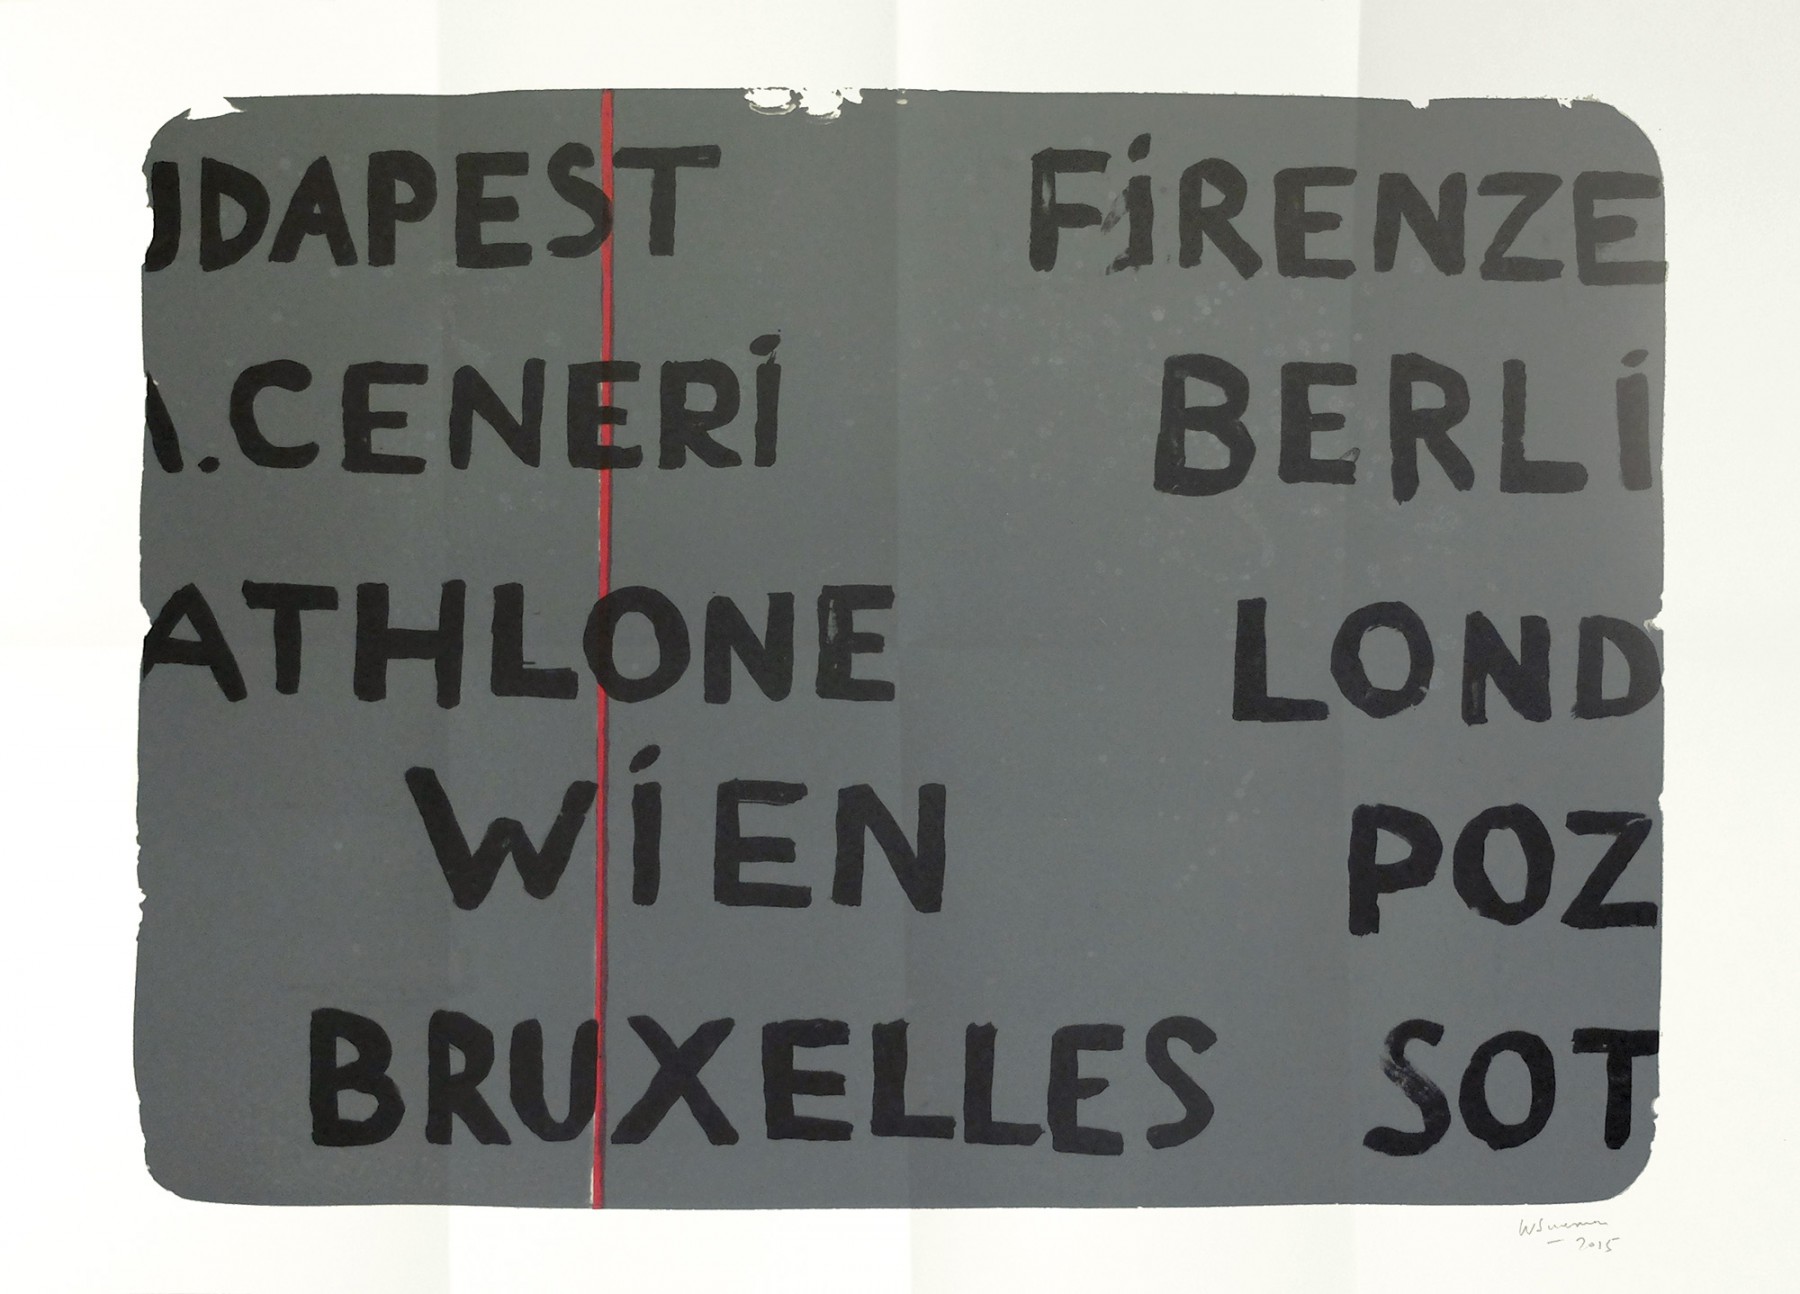 UDAPEST FiRENZE
.CENERi BERLi
ATHLONE LOND
WiEN POZ
BRUXELLES SOT
2015